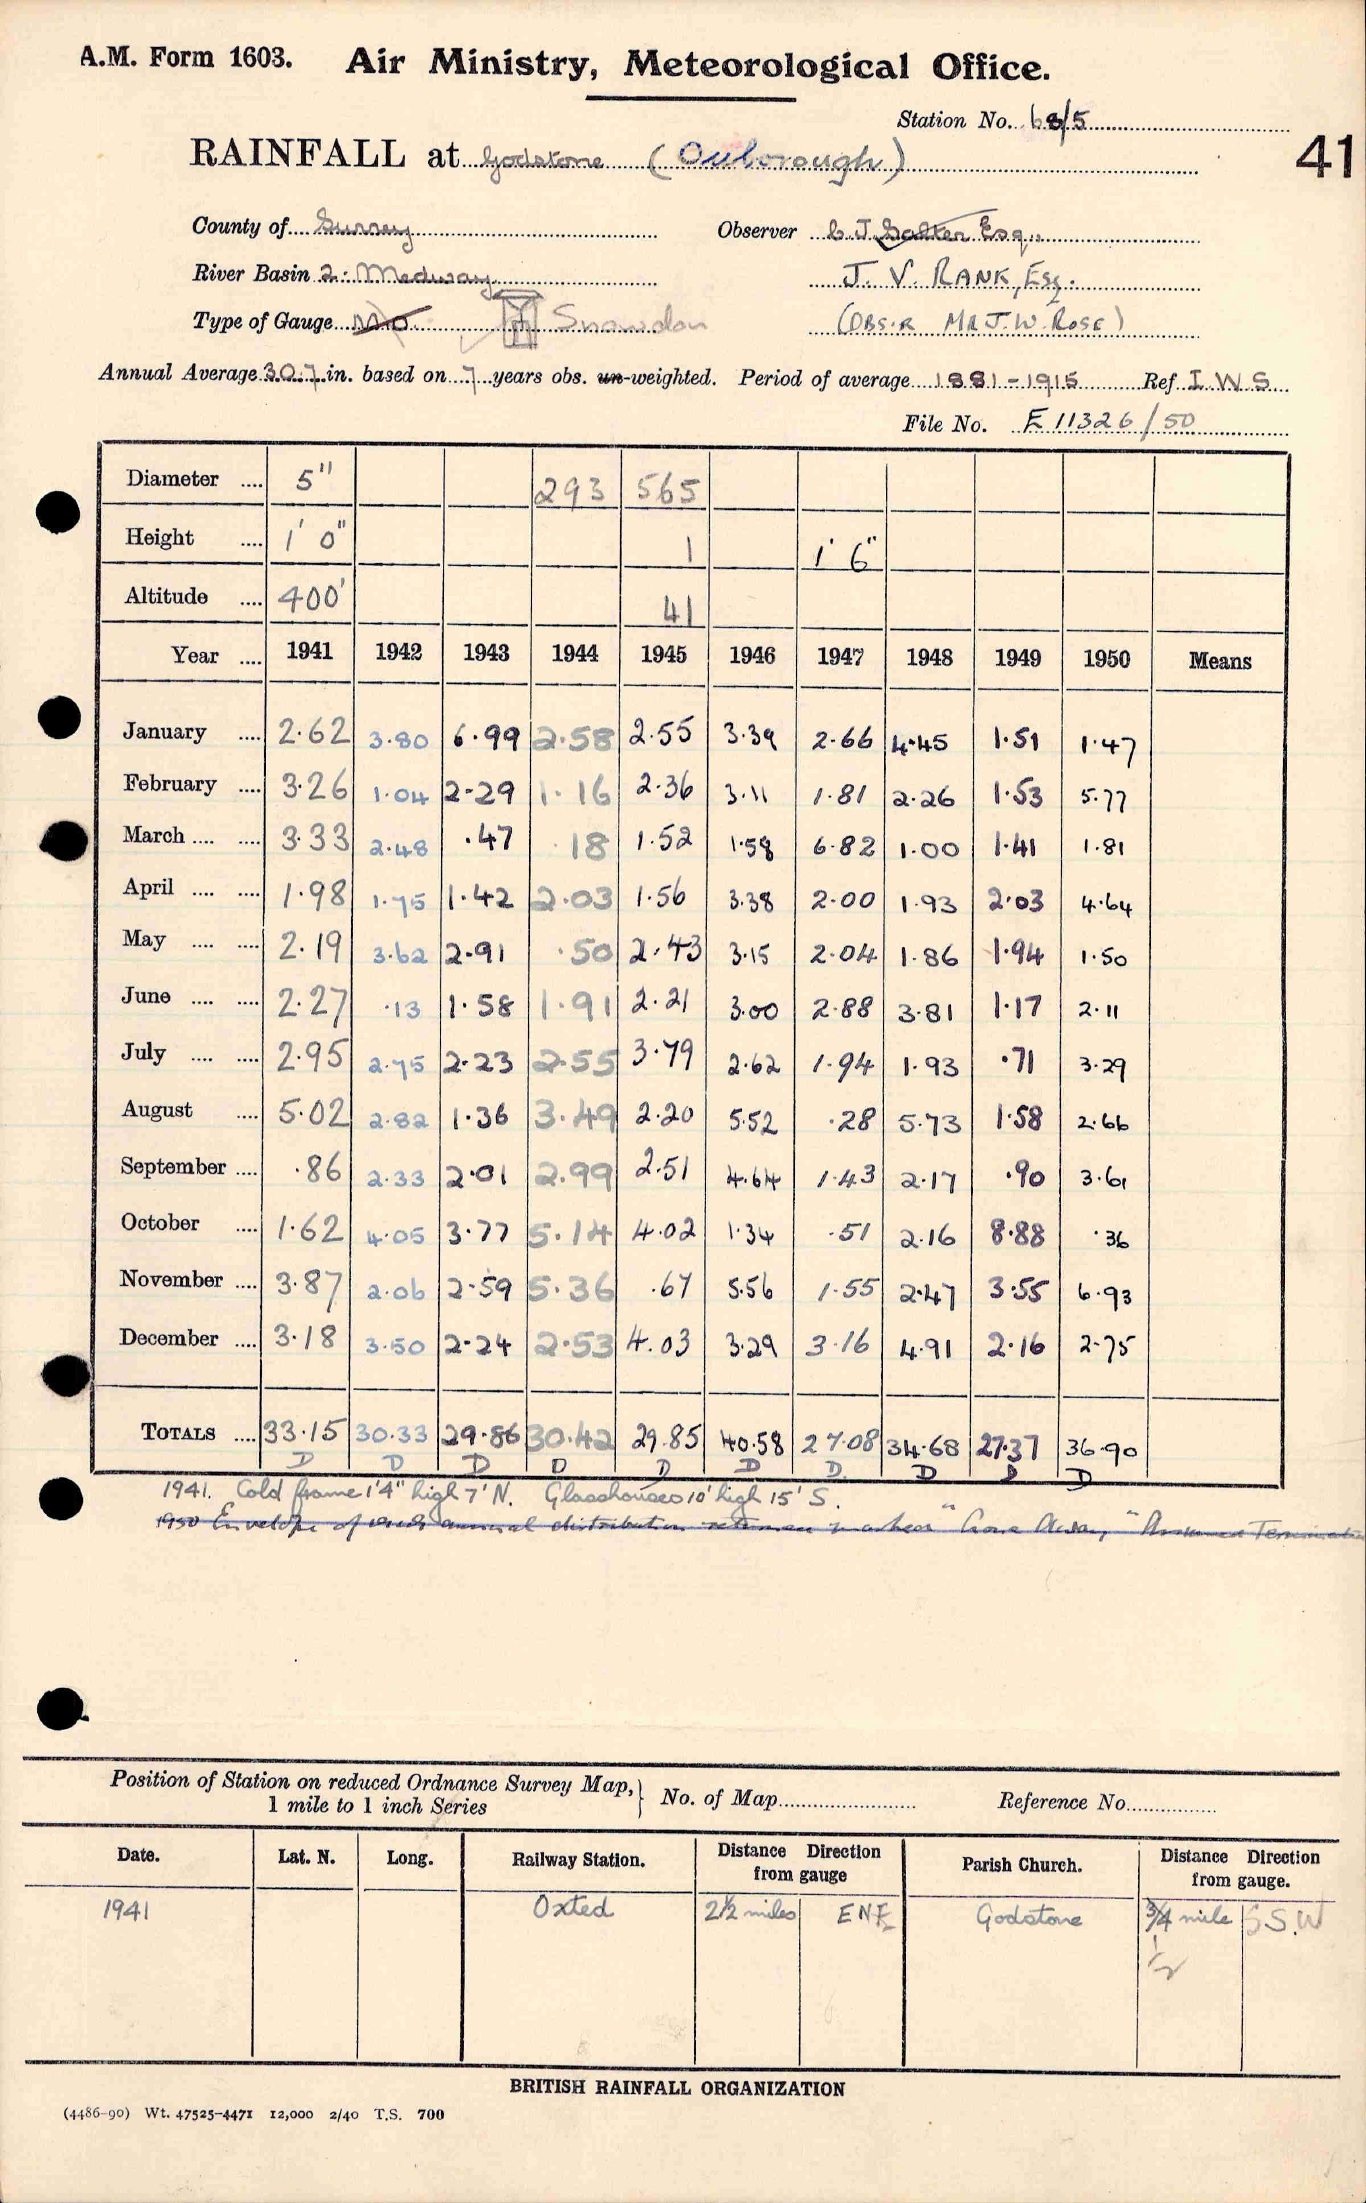 A.M. Form 1603. Air Ministry, Meteorological Office.
Station No. 68/5
41
RAINFALL at Godstone (Ouborough)
County of Surrey Observer C J Salter Esq.
River Basin 2. Medway J. V. RANK, Esq.
Type of Gauge M.O. Snowdon (OBS.R MR J. W. ROSE)
Annual Average 30.7 in. based on 7 years obs. un-weighted. Period of average 1881-1915 Ref I W S
File No. E 11326/50
Diameter .... 5" 293 565
Height .... 1' 0" 1 1' 6"
Altitude .... 400' 41
Year .... 1941 1942 1943 1944 1945 1946 1947 1948 1949 1950 Means
January .... 2.62 3.80 6.99 2.58 2.55 3.39 2.66 4.45 1.51 1.47
February .... 3.26 1.04 2.29 1.16 2.36 3.11 1.81 2.26 1.53 5.77
March .... .... 3.33 2.48 .47 .18 1.52 1.58 6.82 1.00 1.41 1.81
April .... .... 1.98 1.75 1.42 2.03 1.56 3.38 2.00 1.93 2.03 4.64
May .... .... 2.19 3.62 2.91 .50 2.43 3.15 2.04 1.86 1.94 1.50
June .... .... 2.27 .13 1.58 1.91 2.21 3.00 2.88 3.81 1.17 2.11
July .... .... 2.95 2.75 2.23 2.55 3.79 2.62 1.94 1.93 .71 3.29
August .... 5.02 2.82 1.36 3.49 2.20 5.52 .28 5.73 1.58 2.66
September .... .86 2.33 2.01 2.99 2.51 4.64 1.43 2.17 .90 3.61
October .... 1.62 4.05 3.77 5.14 4.02 1.34 .51 2.16 8.88 .36
November .... 3.87 2.06 2.59 5.36 .67 5.56 1.55 2.47 3.55 6.93
December .... 3.18 3.50 2.24 2.53 4.03 3.29 3.16 4.91 2.16 2.75
TOTALS .... 33.15 30.33 29.86 30.42 29.85 40.58 27.08 34.68 27.37 36.90
D D D D D D D. D D D
1941. Cold frame 1'4" high 7' N. Glasshouses 10' high 15' S.
1950 Envelope of annual distribution returned marked "Gone Away, "
Position of Station on reduced Ordnance Survey Map,
1 mile to 1 inch Series
No. of Map Reference No.
Date. Lat. N. Long. Railway Station. Distance Direction from gauge Parish Church. Distance Direction from gauge.
1941 Oxted 2½ miles ENE Godstone ¾ mile SSW
½
BRITISH RAINFALL ORGANIZATION
(4486-90) Wt. 47525-4471 12,000 2/40 T.S. 700